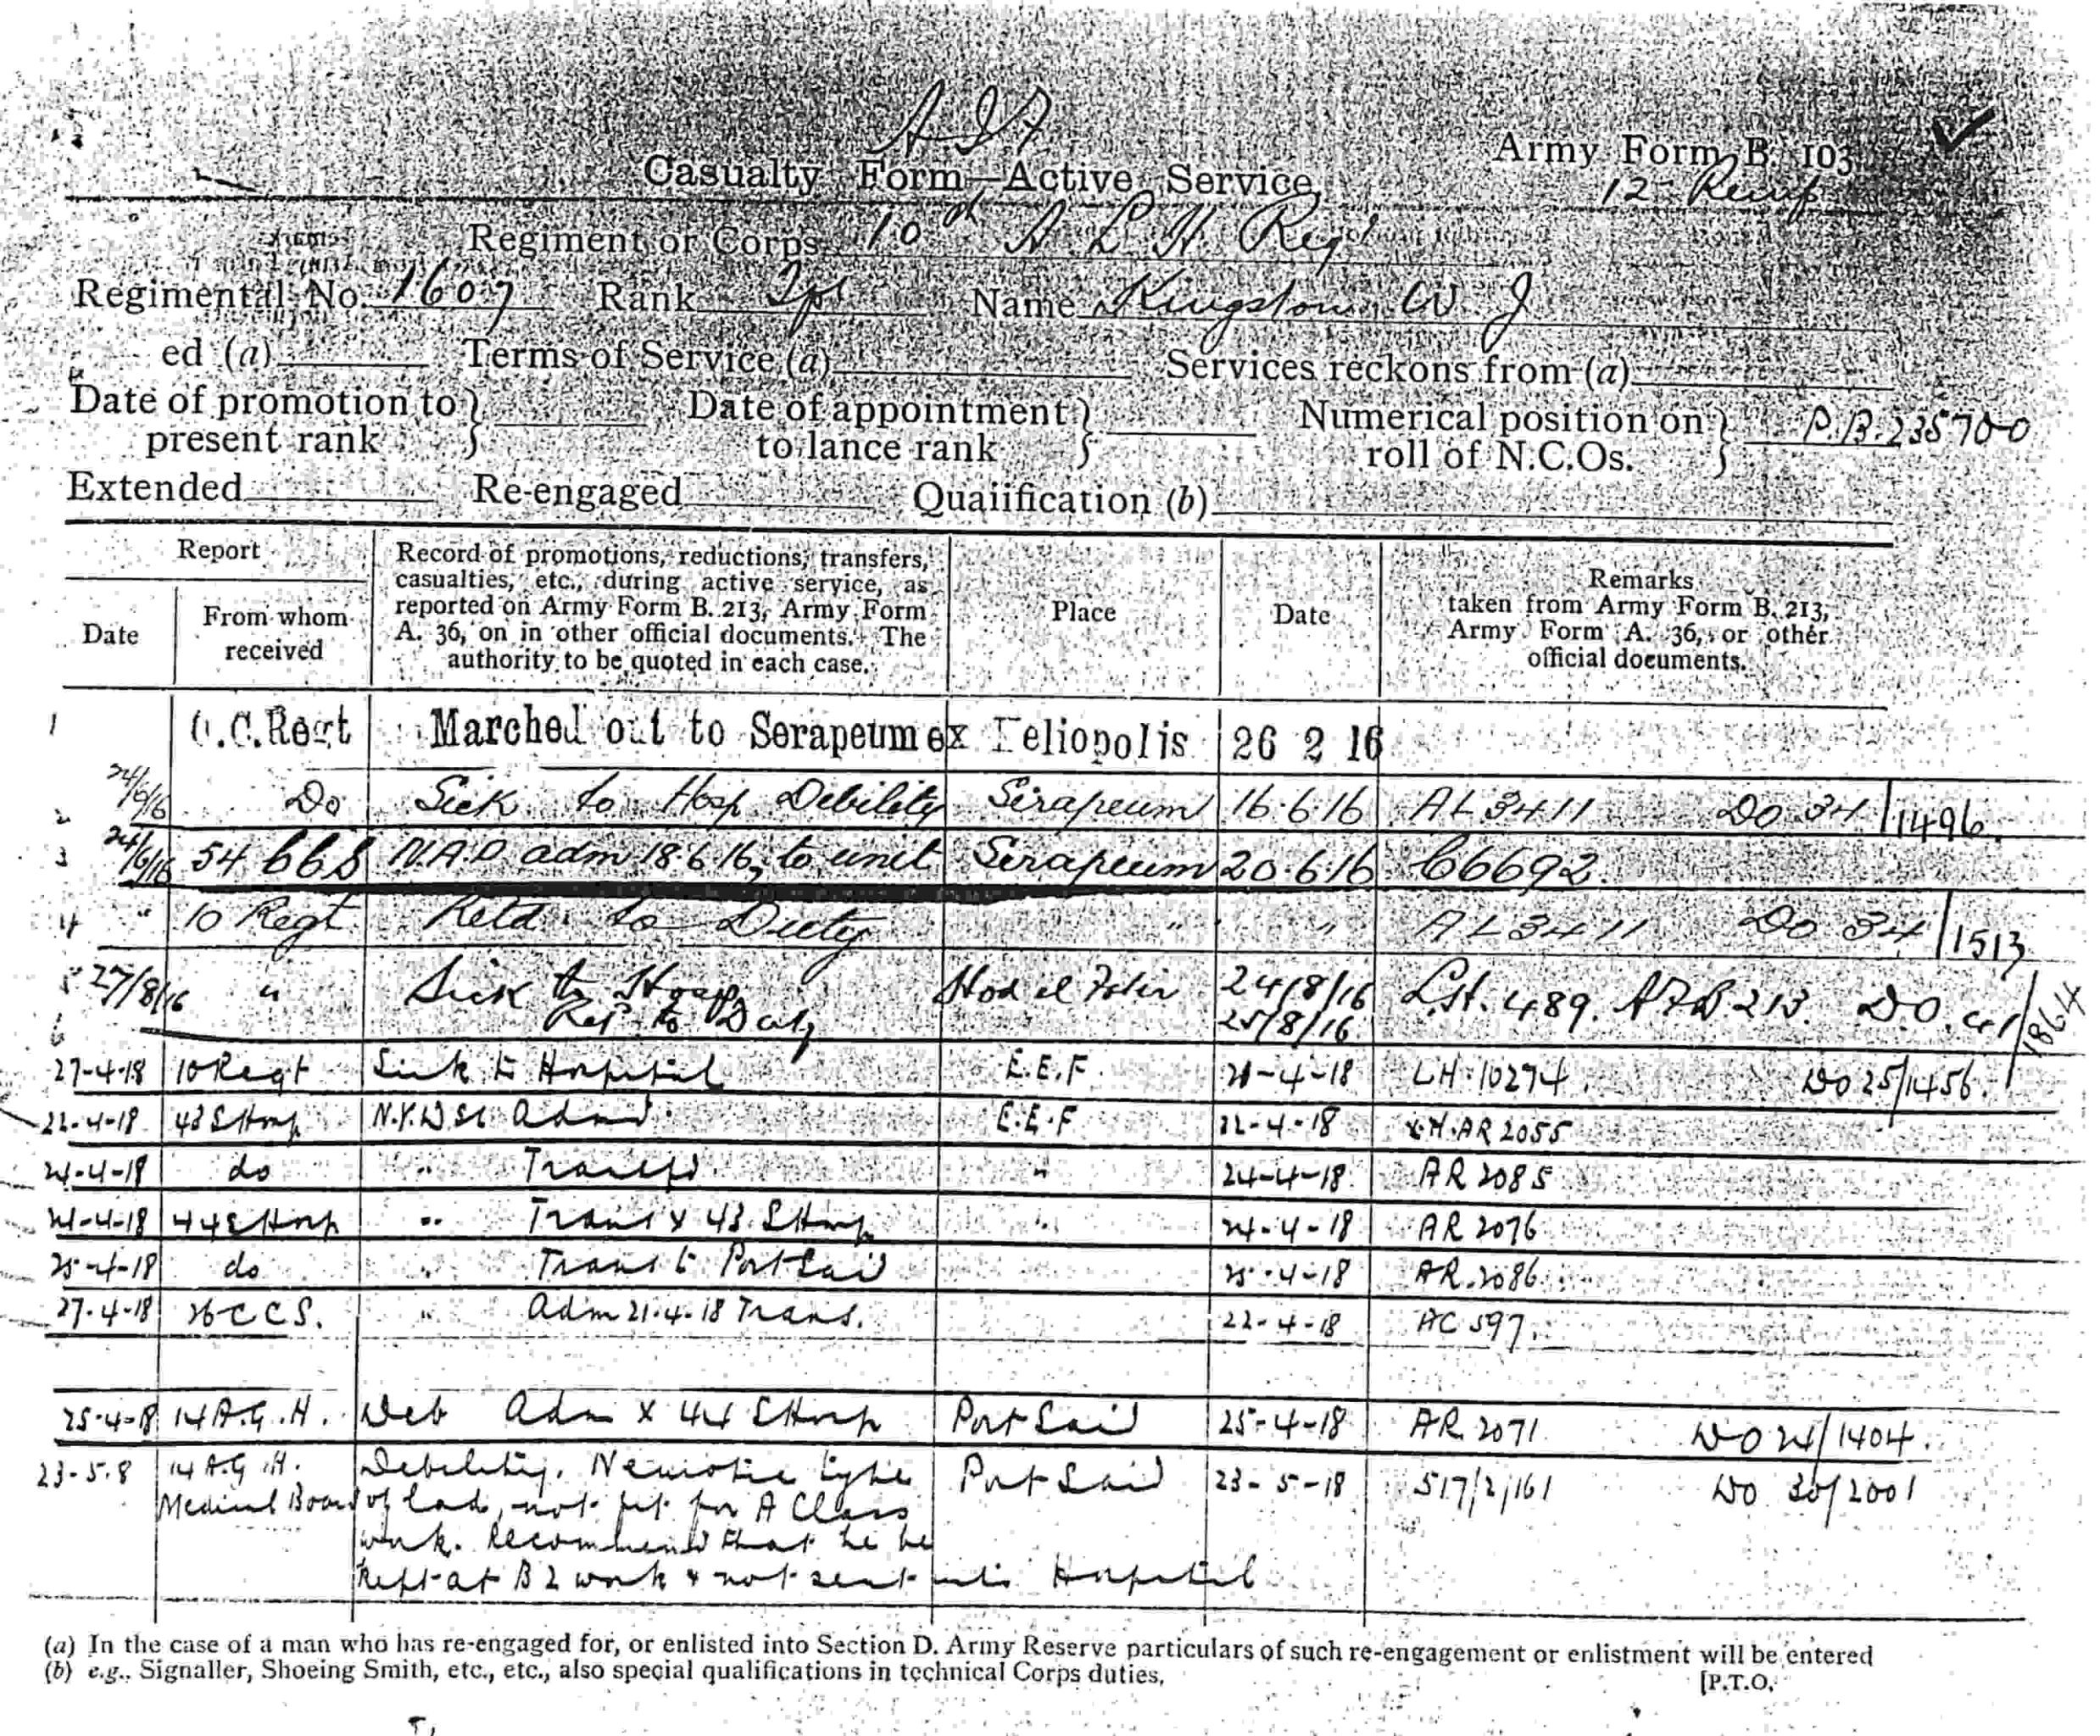 A I F
Army Form B. 103
Casualty Form—Active Service.
12 Reinf
Regiment or Corps 10th A L H. Regt
Regimental No. 1607 Rank Tpr Name Kingston W. J
ed (a) Terms of Service (a) Services reckons from (a)
Date of promotion to present rank } Date of appointment to lance rank } Numerical position on roll of N.C.Os. } P.B. 235700
Extended Re-engaged Qualification (b)
Report
Date
From whom received
Record of promotions, reductions, transfers,
casualties, etc., during active service, as
reported on Army Form B. 213, Army Form
A. 36, on in other official documents. The
authority to be quoted in each case.
Place
Date
Remarks
taken from Army Form B. 213,
Army Form A. 36, or other
official documents.
1 O.C.Regt Marched out to Serapeum ex Heliopolis 26 2 16
2 24/6/16 Do Sick to Hosp Debility Serapeum 16.6.16 AL3411 DO 34/1496.
3 24/6/16 54 CCS N.A.D adm 18.6.16, to unit Serapeum 20.6.16 C6692.
4 " 10 Regt Retd to Duty " " AL3411 DO 34/1513
5 27/8/16 " Sick to Hosp Hod el 24/8/16 Lst. 489. AFB 213. D.O. 41/1864
6 Ret to Duty 25/8/16
27-4-18 10 Regt Sick to Hospital E.E.F. 21-4-18 LH.10274. DO 25/1456.
22-4-18 43 S Hosp N.Y.D Sl Admd. E.E.F 22-4-18 AR 2055
24-4-18 do " Transfd. " 24-4-18. AR 2085
24-4-18 44 S Hosp " Trans x 43 S Hosp " 24-4-18 AR 2076
25-4-18 do " Trans to Port Said 25-4-18 AR.2086.
27-4-18 26 C C S. " Adm 21.4.18 Trans. 22-4-18 AC 597.
25-4-18 14 A.G.H. Deb Adm x 44 S Hosp Port Said 25-4-18 AR 2071 DO 24/1404.
23-5-8 14 A.G.H. Debility. Neurotic type Port Said 23-5-18 517/2/161 DO 30/2001
Medical Board of lad, not fit for A Class
work. Recommend that he be
kept at B2 work & not sent into Hospital
(a) In the case of a man who has re-engaged for, or enlisted into Section D. Army Reserve particulars of such re-engagement or enlistment will be entered
(b) e.g., Signaller, Shoeing Smith, etc., etc., also special qualifications in technical Corps duties.
[P.T.O.